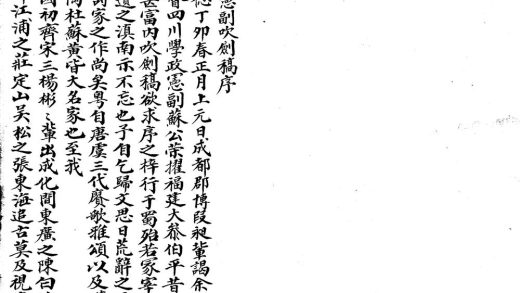 憲副吹劍稿序
德丁卯春正月上元日成都郡博段昶輩謁余
督四川學政憲副蘇公榮擢福建大叅伯平昔
甚富內吹劍稿欲求序之梓行于蜀殆若冢宰
遺之滇南示不忘也予自乞歸文思日荒辭之
詩家之作尚矣粤自唐虞三代賡歌雅頌以及
陶杜蘇黃皆大名家也至我
國初齊宋三楊彬彬輩出成化間東廣之陳白
江浦之莊定山吴松之張東海追古莫及視